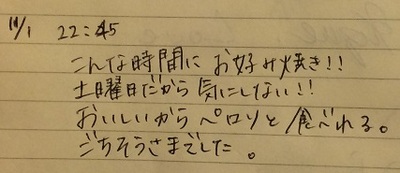 11/1 22:45
こんな時間に お好み焼き!!
土曜日だから 気にしない!!
おいしいから ペロリと 食べれる。
ごちそうさまでした。